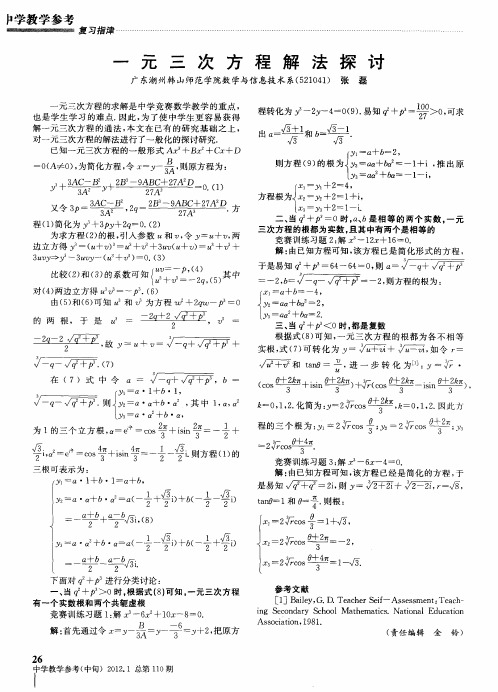 中学教学参考
复习指津
一元三次方程解法探讨
广东潮州韩山师范学院数学与信息技术系(521041) 张 磊
一元三次方程的求解是中学竞赛数学教学的重点,
也是学生学习的难点.因此,为了使中学生更容易获得
解一元三次方程的通法,本文在已有的研究基础之上,
对一元三次方程的解法进行了一般化的探讨研究.
已知一元三次方程的一般形式 Ax³+Bx²+Cx+D
=0(A≠0),为简化方程,令 x=y-B/3A,则原方程为:
y³+(3AC-B²)/3A² y+(2B³-9ABC+27A²D)/27A³=0.(1)
又令 3p=(3AC-B²)/3A²,2q=(2B³-9ABC+27A²D)/27A³.方
程(1)简化为 y³+3py+2q=0.(2)
为求方程(2)的根,引入参数 u 和 v,令 y=u+v,两
边立方得 y³=(u+v)³=u³+v³+3uv(u+v)=u³+v³+
3uvy⇒y³-3uvy-(u³+v³)=0.(3)
比较(2)和(3)的系数可知{uv=-p,(4) u³+v³=-2q,(5)其中
对(4)两边立方得 u³v³=-p³.(6)
由(5)和(6)可知 u³ 和 v³ 为方程 w²+2qw-p³=0
的两根,于是 u³=(-2q+2√(q²+p³))/2,v³=
(-2q-2√(q²+p³))/2,故 y=u+v=∛(-q+√(q²+p³))+
∛(-q-√(q²+p³)).(7)
在(7)式中令 a=∛(-q+√(q²+p³)),b=
∛(-q-√(q²+p³)).则{y₁=a·1+b·1, y₂=a·α+b·α², y₃=a·α²+b·α,其中 1,α,α²
为 1 的三个立方根,α=e^iθ=cos 2π/3+isin 2π/3=-1/2+
√3/2 i,α²=e^iθ=cos 4π/3+isin 4π/3=-1/2-√3/2 i.则方程(1)的
三根可表示为:
y₁=a·1+b·1=a+b,
y₂=a·α+b·α²=a(-1/2+√3/2 i)+b(-1/2-√3/2 i)
=-(a+b)/2+(a-b)/2 √3i,(8)
y₃=a·α²+b·α=a(-1/2-√3/2 i)+b(-1/2+√3/2 i)
=-(a+b)/2-(a-b)/2 √3i.
下面对 q²+p³ 进行分类讨论:
一、当 q²+p³>0 时,根据式(8)可知,一元三次方程
有一个实数根和两个共轭虚根
竞赛训练题 1:解 x³-6x²+10x-8=0.
解:首先通过令 x=y-B/3A=y-(-6)/3=y+2,把原方
程转化为 y³-2y-4=0(9).易知 q²+p³=100/27>0,可求
出 a=(√3+1)/√3 和 b=(√3-1)/√3.
则方程(9)的根为{y₁=a+b=2, y₂=aα+bα²=-1+i, y₃=aα²+bα=-1-i,推出原
方程根为{x₁=y₁+2=4, x₂=y₂+2=1+i, x₃=y₃+2=1-i.
二、当 q²+p³=0 时,a、b 是相等的两个实数,一元
三次方程的根都为实数,且其中有两个是相等的
竞赛训练题 2:解 x³-12x+16=0.
解:由已知方程可知,该方程已是简化形式的方程,
于是易知 q²+p³=64-64=0,则 a=∛(-q+√(q²+p³))
=-2,b=∛(-q-√(q²+p³))=-2,则方程的根为:
x₁=a+b=-4,
y₂=aα+bα²=2,
y₃=aα²+bα=2.
三、当 q²+p³<0 时,都是复数
根据式(8)可知,一元三次方程的根都为各不相等
实根,式(7)可转化为 y=∛(u+vi)+∛(u-vi),如令 r=
√(u²+v²) 和 tanθ=v/u,进一步转化为[1],y=∛r·
(cos (θ+2kπ)/3+isin (θ+2kπ)/3)+∛r(cos (θ+2kπ)/3-isin (θ+2kπ)/3),
k=0,1,2.化简为:y=2∛r cos (θ+2kπ)/3,k=0,1,2.因此方
程的三个根为:y₁=2∛r cos θ/3;y₂=2∛r cos (θ+2π)/3;y₃
=2∛r cos (θ+4π)/3.
竞赛训练题 3:解 x³-6x-4=0.
解:由已知方程可知,该方程已经是简化的方程,于
是易知 √(q²+p³)=2i,则 y=∛(2+2i)+∛(2-2i),r=√8,
tanθ=1 和 θ=π/4.则根:
x₁=2∛r cos θ/3=1+√3,
x₂=2∛r cos (θ+2π)/3=-2,
x₃=2∛r cos (θ+4π)/3=1-√3.
参考文献
[1]Bailey,G.D.Teacher Self—Assessment:Teach-
ing Secondary School Mathematics. National Education
Association,1981.
(责任编辑 金 铃)
26
中学教学参考(中旬) 2012.1 总第 110 期